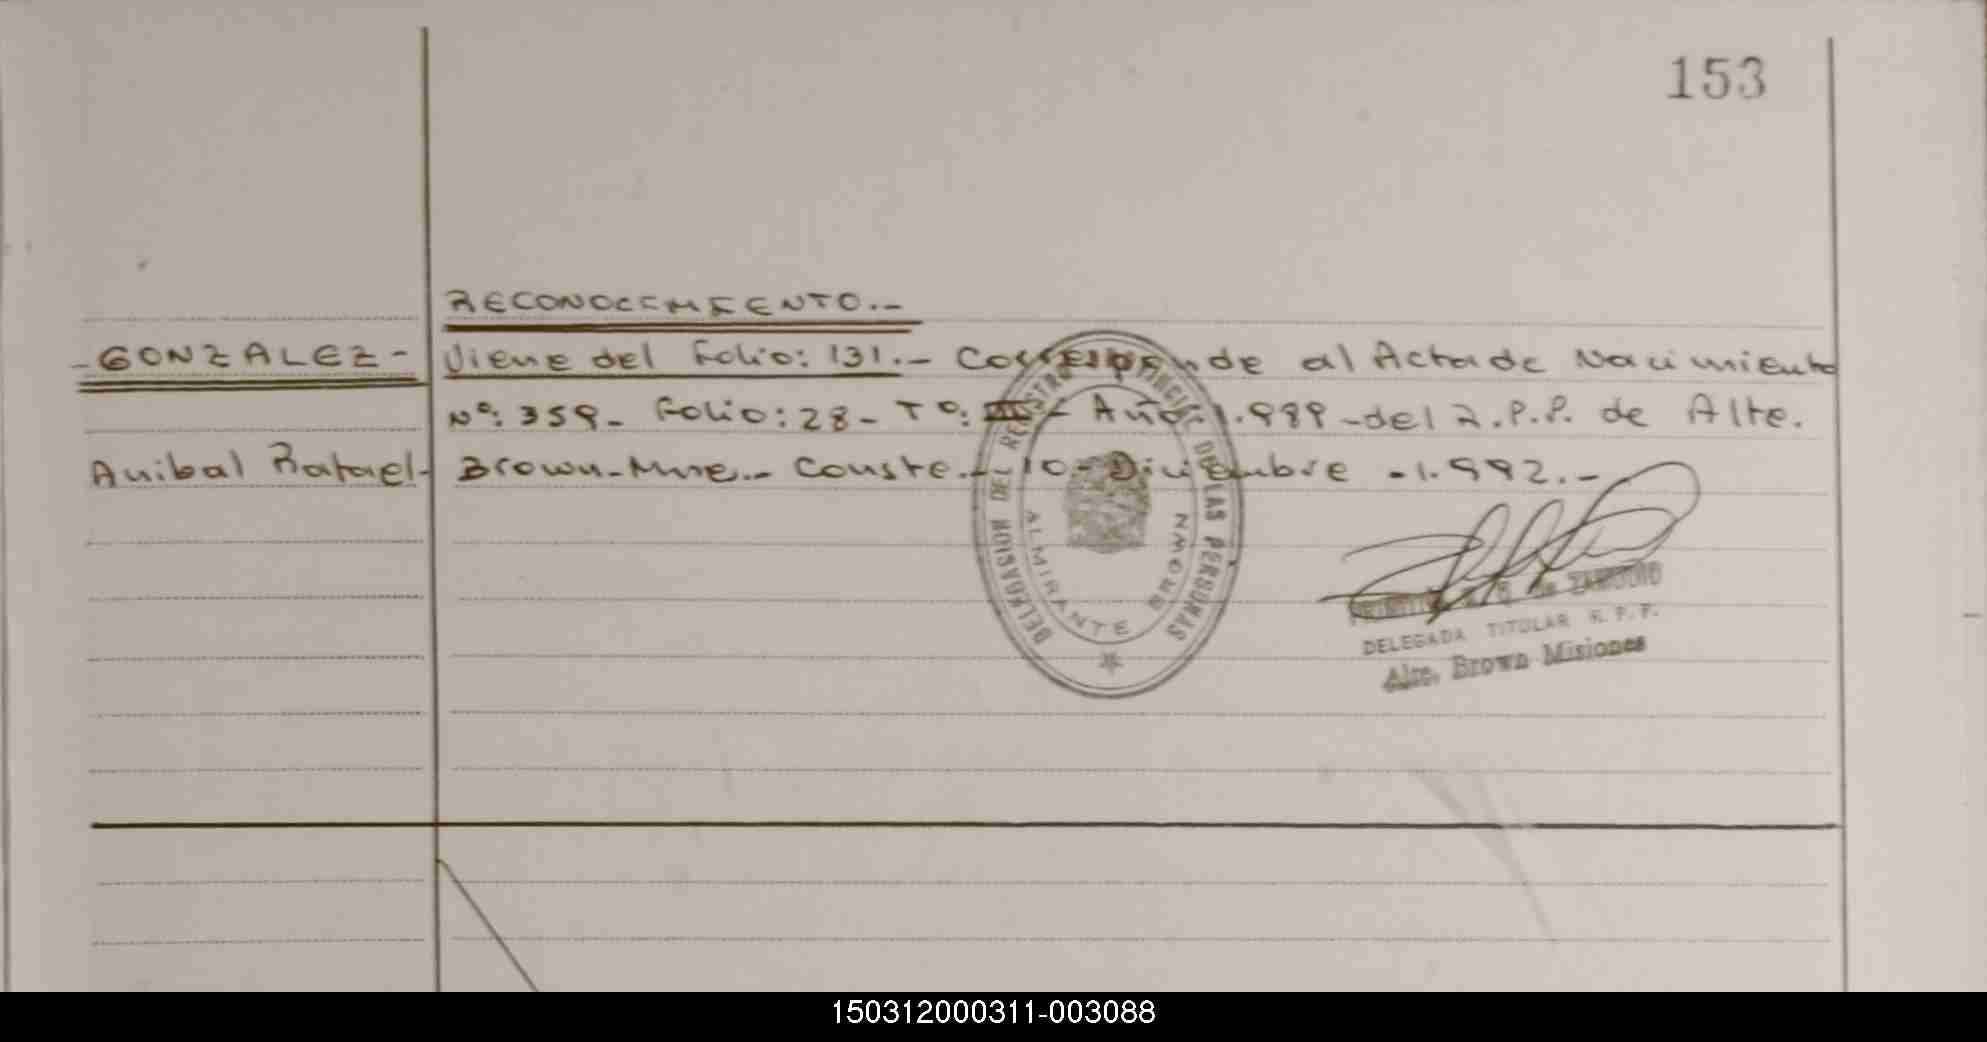 153
RECONOCIMIENTO.-
-GONZALEZ- Viene del Folio: 131.- Corresponde al Acta de Nacimiento
Nº: 359- Folio: 28- Tº: III- Año: 1.989-del R.P.P. de Alte.
Anibal Rafael- Brown-Mnes.- Conste.- 10-Diciembre -1.992.-
DELEGACION DEL REGISTRO PROVINCIAL DE LAS PERSONAS
ALMIRANTE BROWN
de ZAMUDIO
DELEGADA TITULAR R. P. P.
Alte. Brown Misiones
150312000311-003088